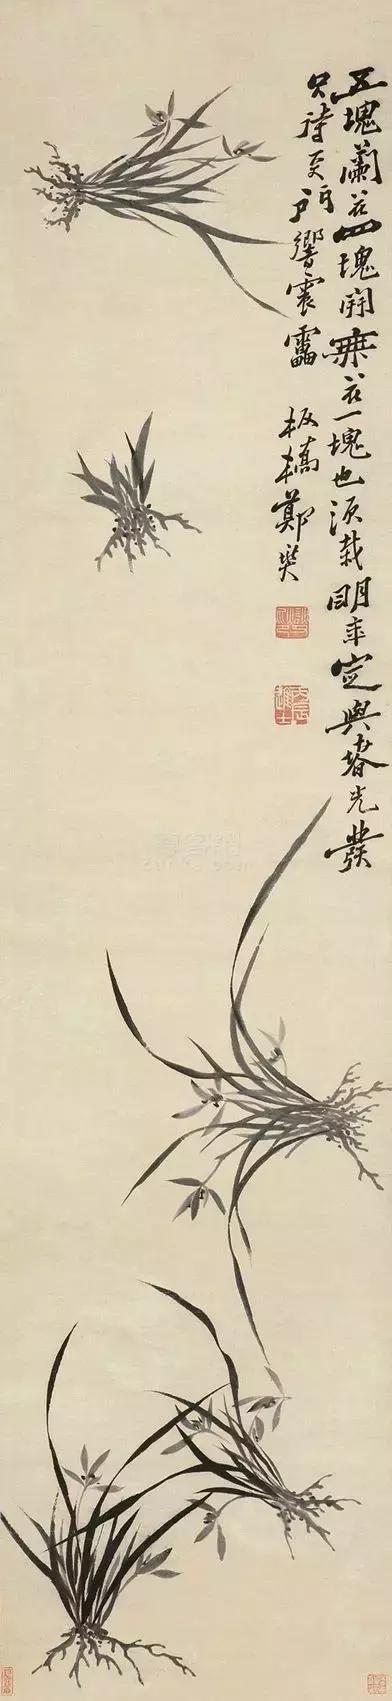 五塊蘭花四塊開無花一塊也須栽明年定與春光發
只待門響震靁 板橋鄭燮
丙辰進士